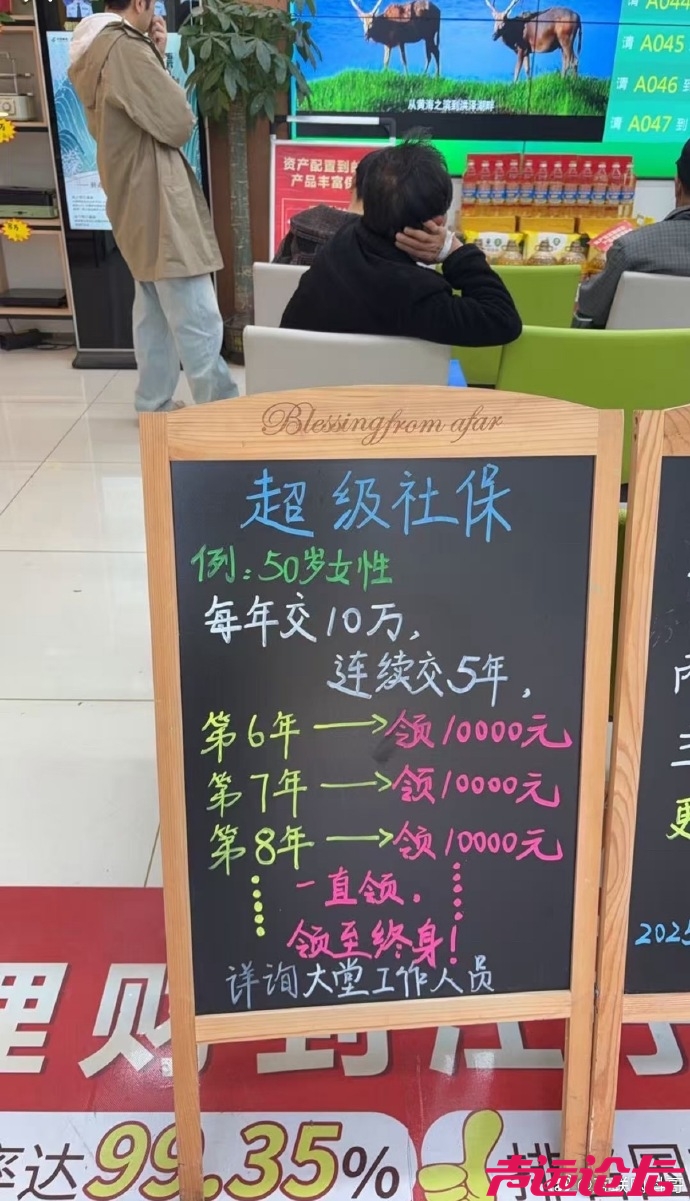 A044
请 A045
请 A046 到
请 A047 到
从黄海之滨到洪泽湖畔
资产配置到邮
产品丰富保
Blessing from afar
超级社保
例:50岁女性
每年交10万,
连续交5年,
第6年→领10000元
第7年→领10000元
第8年→领10000元
一直领.
领至终身!
详询大堂工作人员
三
更
2025
理财到江苏
率达99.35%